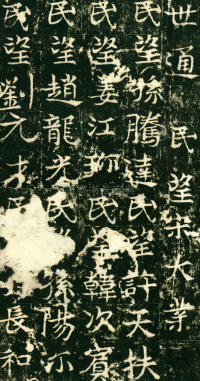 世通民望宋大業
民望孫騰達民望許天扶
民望姜江孫民望韓次賓
民望趙龍光民孫陽尒
民望劉元才民長和